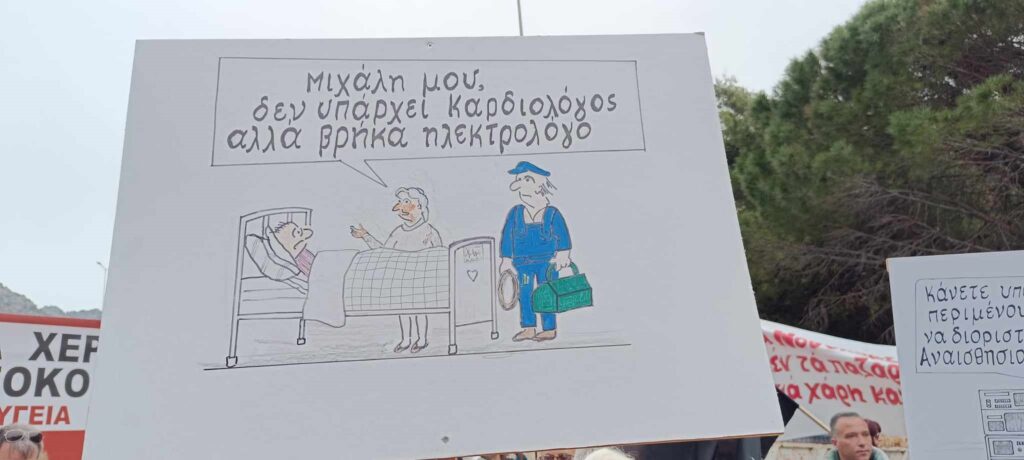 Μιχάλη μου,
δεν υπάρχει καρδιολόγος
αλλά βρήκα ηλεκτρολόγο
ΧΕΡ
ΣΟΚΟ
ΥΓΕΙΑ
κάνετε υπ
περιμένου
να διοριστ
Αναισθησιο
χάρη κα